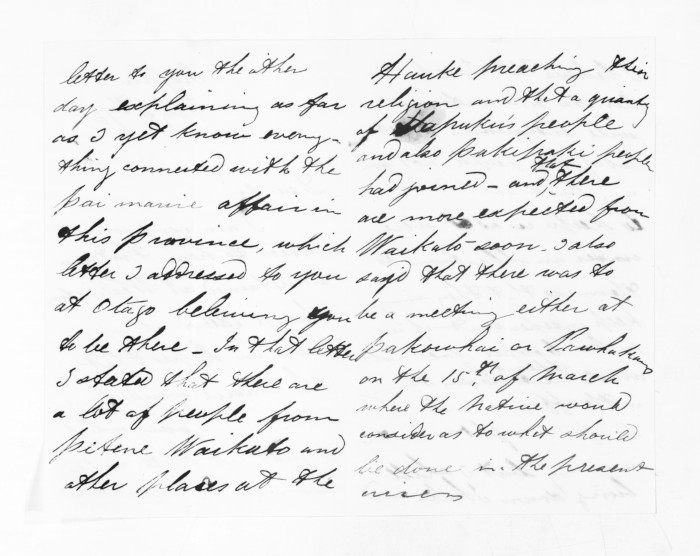 letter to you the other
day explaining as far
as I yet know every-
thing connected with the
Pai marire affair in
this Province, which
letter I addressed to you
at Otago believing you
to be there - In that letter
I stated that there are
a lot of people from
Petene Waikato and
other places at the
Hauke preaching their
religion and that a quantity
of Hapuku's people
and also Pakipaki people
had joined - and that there
are more expected from
Waikato soon. I also
said that there was to
be a meeting either at
Pakowhai or
on the 15th. of March
where the Native would
consider as to what should
be done in the present
crisis